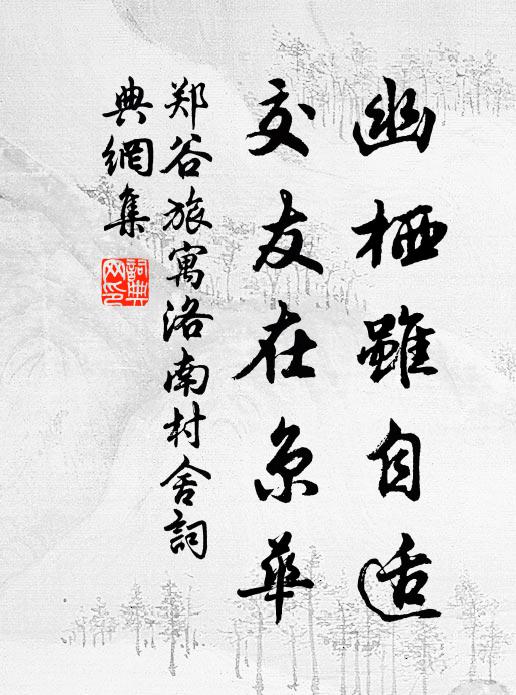 幽栖雖自适
交友在京華
郑谷旅寓洛南村舍詞
典網集
詞典网印